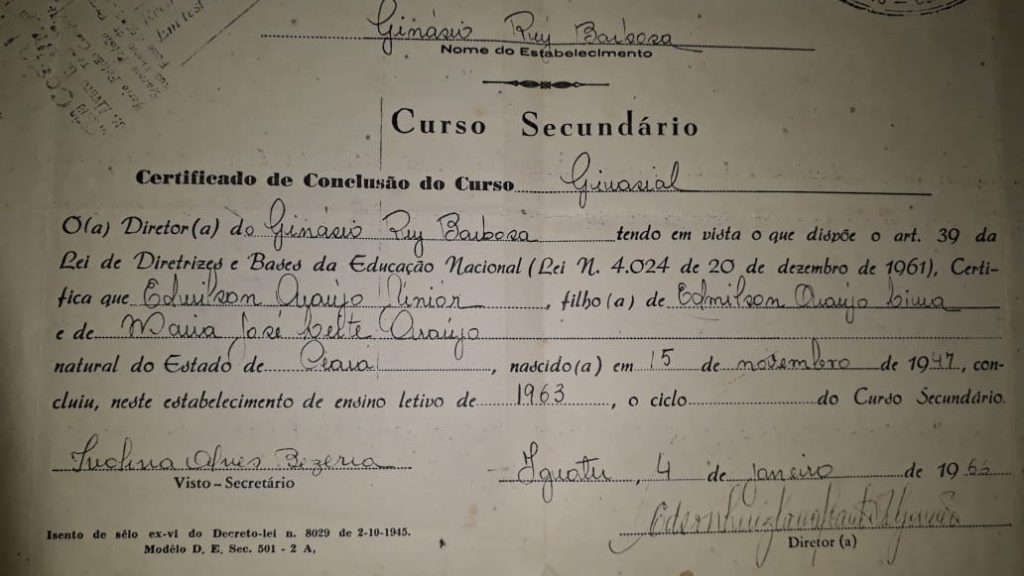 Em test
Ginásio Ruy Barbosa
Nome do Estabelecimento
Curso Secundário
Certificado de Conclusão do Curso Ginasial
O(a) Diretor(a) do Ginásio Ruy Barbosa tendo em vista o que dispõe o art. 39 da
Lei de Diretrizes e Bases da Educação Nacional (Lei N. 4.024 de 20 de dezembro de 1961), Certi-
fica que Edmilson Araújo Júnior, filho(a) de Edmilson Araújo Lima
e de Maria José Leite Araújo
natural do Estado de Ceara, nascido(a) em 15 de novembro de 1947, con-
cluiu, neste estabelecimento de ensino letivo de 1963, o ciclo do Curso Secundário.
Alves Bezerra
Visto - Secretário
Iguatu, 4 de janeiro de 1966
Diretor (a)
Isento de sêlo ex-vi do Decreto-lei n. 8029 de 2-10-1945.
Modêlo D. E. Sec. 501 - 2 A.